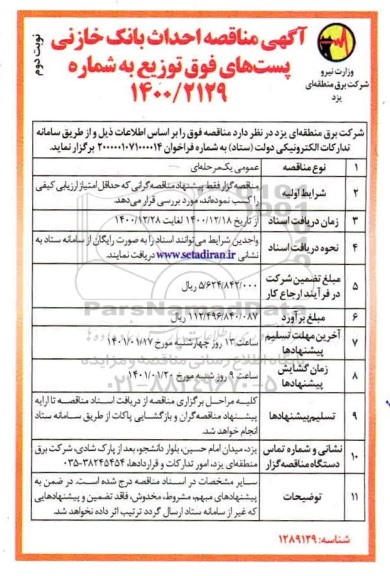 نوبت دوم
آگهی مناقصه احداث بانک خازنی
پست‌های فوق توزیع به شماره
۱۴۰۰/۲۱۲۹
وزارت نیرو
شرکت برق منطقه‌ای
یزد
شرکت برق منطقه‌ای یزد در نظر دارد مناقصه فوق را بر اساس اطلاعات ذیل و از طریق سامانه
تدارکات الکترونیکی دولت (ستاد) به شماره فراخوان ۲۰۰۰۰۰۱۰۷۱۰۰۰۰۱۴ برگزار نماید.
۱ نوع مناقصه عمومی یک‌مرحله‌ای
۲ شرایط اولیه مناقصه‌گزار فقط پیشنهاد مناقصه‌گرانی که حداقل امتیاز ارزیابی کیفی
را کسب نموده‌اند، مورد بررسی قرار می‌دهد.
۳ زمان دریافت اسناد از تاریخ ۱۴۰۰/۱۲/۱۸ لغایت ۱۴۰۰/۱۲/۲۸
۴ نحوه دریافت اسناد واجدین شرایط می‌توانند اسناد را به صورت رایگان از سامانه ستاد به
نشانی www.setadiran.ir دریافت نمایند.
۵ مبلغ تضمین شرکت
در فرآیند ارجاع کار ۵/۶۲۴/۸۴۲/۰۰۰ ریال
۶ مبلغ برآورد ۱۱۲/۴۹۶/۸۴۰/۰۸۷ ریال
۷ آخرین مهلت تسلیم
پیشنهادها ساعت ۱۳ روز چهارشنبه مورخ ۱۴۰۱/۰۱/۱۷
۸ زمان گشایش
پیشنهادها ساعت ۹ روز شنبه مورخ ۱۴۰۱/۰۱/۲۰
۹ تسلیم پیشنهادها کلیه مراحل برگزاری مناقصه از دریافت اسناد مناقصه تا ارایه
پیشنهاد مناقصه‌گران و بازگشایی پاکات از طریق سامانه ستاد
انجام خواهد شد.
۱۰ نشانی و شماره تماس
دستگاه مناقصه‌گزار یزد، میدان امام حسین، بلوار دانشجو، بعد از پارک شادی، شرکت برق
منطقه‌ای یزد، امور تدارکات و قراردادها، ۳۸۲۴۵۴۵۴-۰۳۵
۱۱ توضیحات سایر مشخصات در اسناد مناقصه درج شده است. در ضمن به
پیشنهادهای مبهم، مشروط، مخدوش، فاقد تضمین و پیشنهادهایی
که غیر از سامانه ستاد ارسال گردد ترتیب اثر داده نخواهد شد.
شناسه: ۱۲۸۹۱۲۹
ParsNamadData